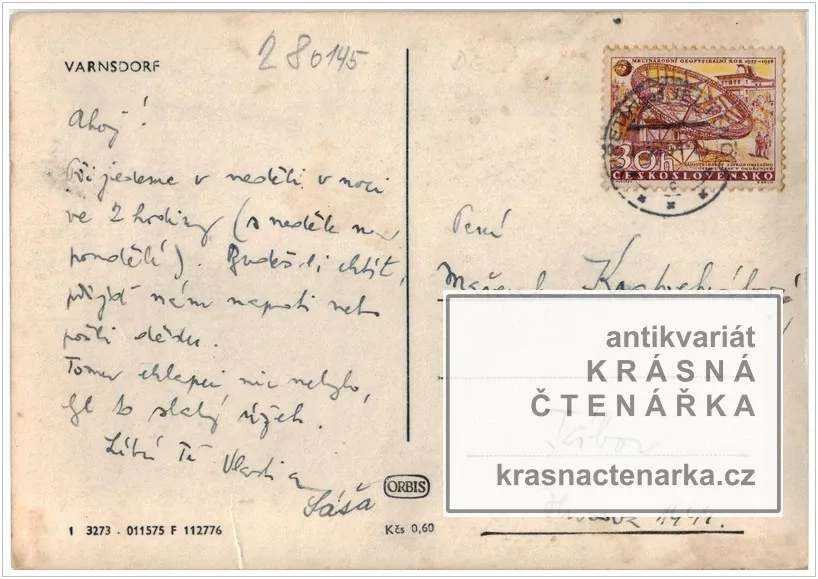 VARNSDORF
280145
Ahoj!
Přijedeme v neděli v noci
ve 2 hodiny (s neděle na
pondělí). Budeš-li chtít,
přijď nám naproti nebo
pošli dědu.
Tomu chlapci nic nebylo,
byl to slabý úžeh.
Líbá Tě Vlasta a
Sáša
ORBIS
1 3273 - 011575 F 112776
Kčs 0,60
MEZINÁRODNÍ GEOFYSIKÁLNÍ ROK 1957-1958
30h
ČESKOSLOVENSKO
Paní
antikvariát
KRÁSNÁ
ČTENÁŘKA
Tábor
krasnactenarka.cz